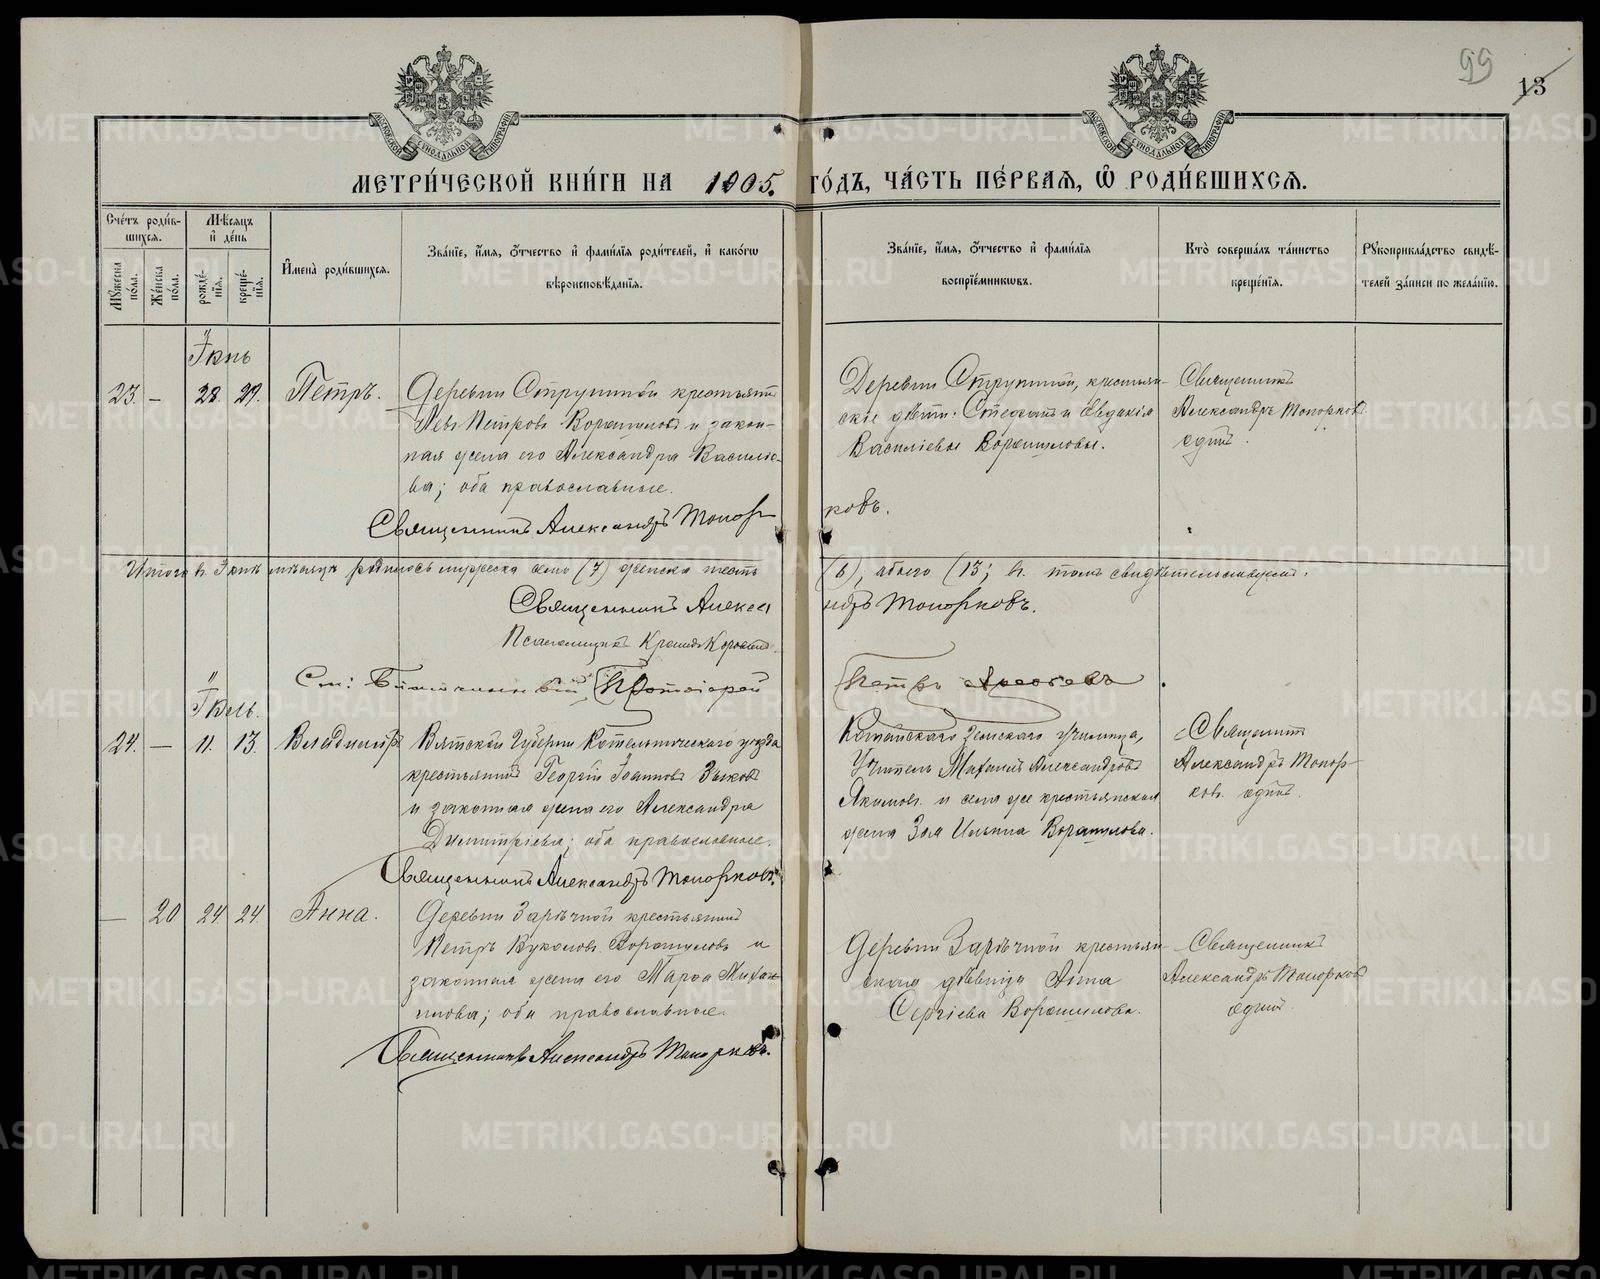 99
13
МОСКОВСКОЙ СѴНОДАЛЬНОЙ ТИПОГРАФІИ
МОСКОВСКОЙ СѴНОДАЛЬНОЙ ТИПОГРАФІИ
МЕТРИ́ЧЕСКОЙ КНИ́ГИ НА 1905. ГО́ДЪ, ЧА́СТЬ ПЕ́РВАѦ, Ѡ РОДИ́ВШИХСѦ.
Сче́тъ роди́в-
шихсѧ.
Мꙋ́жеска по́ла.
Же́нска по́ла.
Мѣ́сѧцъ
и҆ де́нь
рожде́-
нїѧ.
креще́-
нїѧ.
И҆мена̀ роди́вшихсѧ.
Зва́нїе, и҆́мѧ, ѻ҆́тчество и҆ фамї́лїѧ роди́телей, и҆ како́гѡ
вѣроисповѣ́данїѧ.
Зва́нїе, и҆́мѧ, ѻ҆́тчество и҆ фамї́лїѧ
воспрїе́мникѡвъ.
Кто̀ соверша́лъ та́инство
креще́нїѧ.
Рꙋкоприкла́дство свидѣ́-
телей за́писи по жела́нїю.
Іюнь
23. — 28. 29. Петръ.
Деревни Струниной крестьянинъ
Левъ Петровъ Ворошиловъ и закон-
ная жена его Александра Василіе-
ва; оба православные.
Священникъ Александръ Топорковъ.
Деревни Струниной, крестьян-
скіе дѣти: Стефанъ и Евдокія
Василіевы Ворошиловы.
Священникъ
Александръ Топорковъ
одинъ.
Итого въ Іюнѣ мѣсяцѣ родилось мужеска семь (7) женска шесть (6), обоего (13); въ томъ свидѣтельствуемъ:
Священникъ Александръ Топорковъ.
Псаломщикъ
Протоіерей Петръ
Іюль.
24. — 11. 13. Владиміръ
Вятской Губерніи Котельническаго уѣзда
крестьянинъ Георгій Іоанновъ Зыковъ
и законная жена его Александра
Димитріева; оба православные.
Священникъ Александръ Топорковъ.
земскаго училища,
Учитель Михаилъ Александровъ
Якимовъ и села же крестьянская
жена Зоя Ильина Ворошилова.
Священникъ
Александръ Топор-
ковъ одинъ.
— 20 24 24 Анна.
Деревни Зарѣчной крестьянинъ
Петръ Вуколовъ Ворошиловъ и
законная жена его Марѳа Михаи-
лова; оба православные.
Священникъ Александръ Топорковъ.
Деревни Зарѣчной крестьян-
ская дѣвица Анна
Сергіева Ворошилова.
Священникъ
Александръ Топорковъ
одинъ.
METRIKI.GASO-URAL.RU